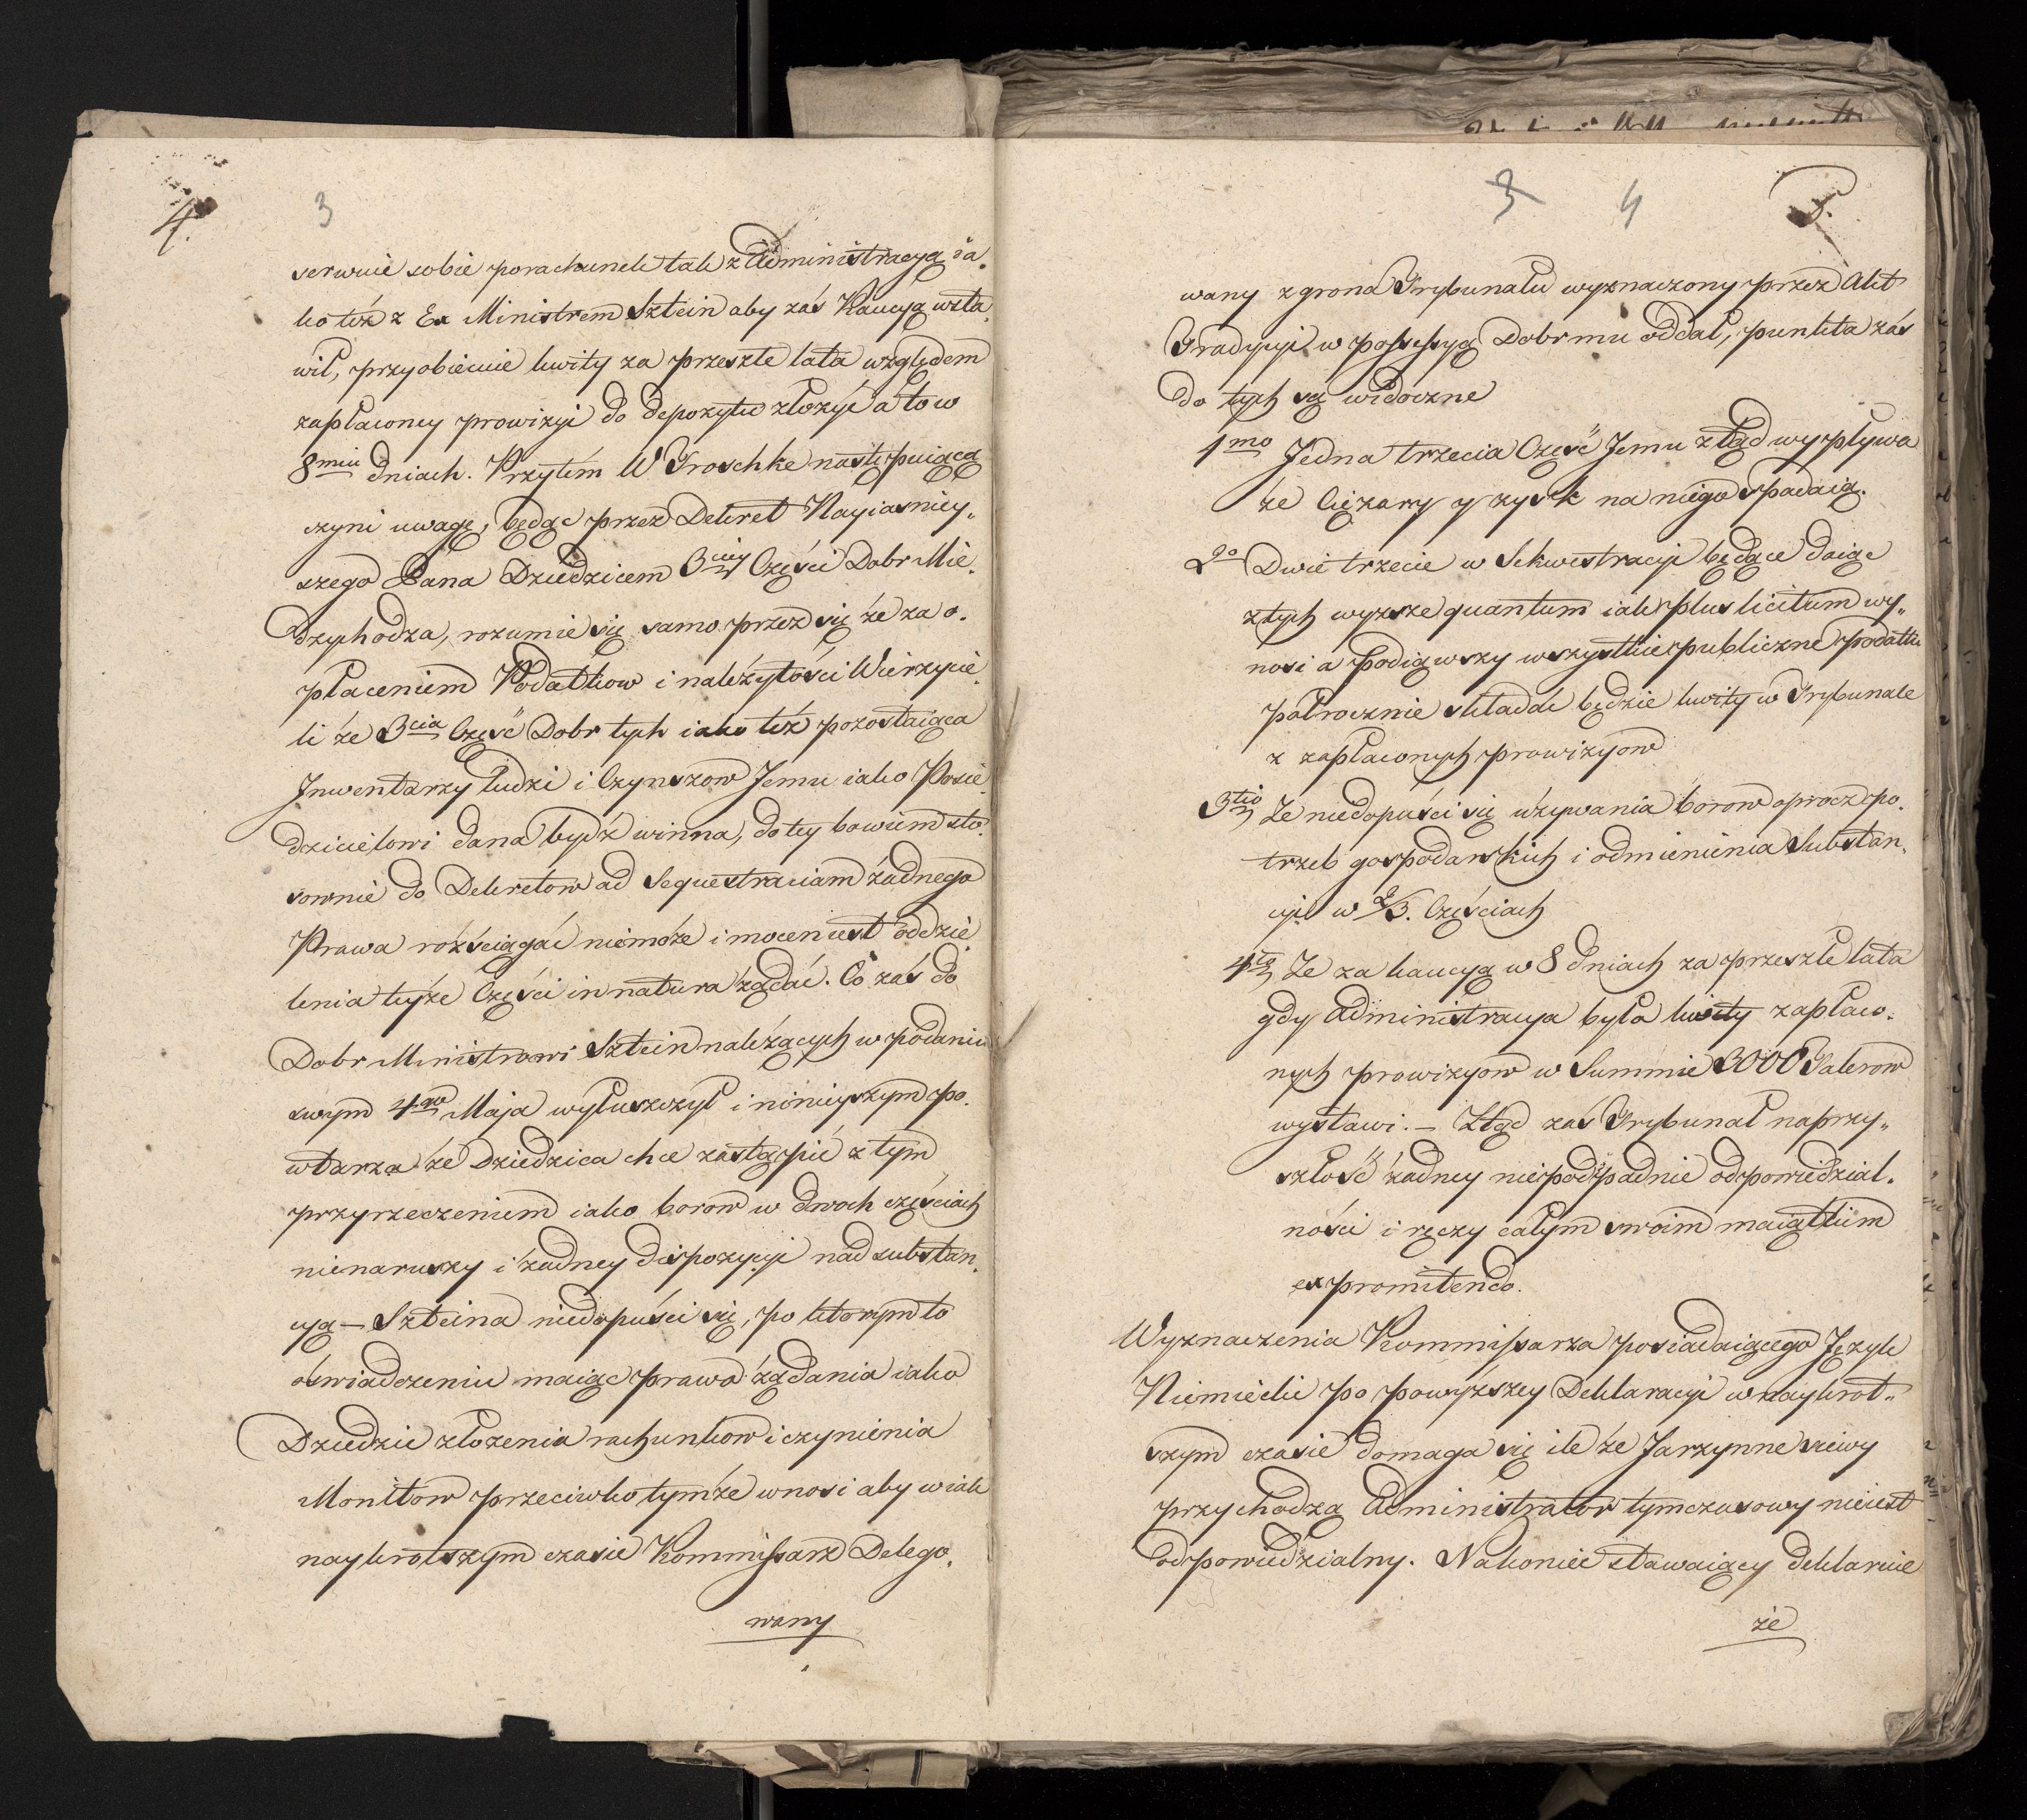 4.
3
serwuie sobie porachunek tak z Administracyą ia„
ko też z Ex Ministrem Sztein aby zaś Kaucyą wsta„
wił, przyobiecuie kwity za przeszłe lata względem
zapłaconey prowizyi do depozytu złożyć a to w
8miu dniach. Przytém W Groschke następuiącą
czyni uwagę, będąc przez Dekret Nayiasniey„
szego Pana Dziedzicem 3ciey Części Dobr Mie„
dzychodza, rozumie się samo przez się że za o„
płaceniem Podatkow i należytości Wierzycie„
li że 3cia Część Dobr tych iako też pozostaiąca
Inwentarzy ludzi i Czynszow Jemu iako Posie„
dzicielowi dana bydź winna, do tey bowiem sto„
sownie do Dekretow ad Sequestraciam żadnego
Prawa rozściągać niemoże i mocen iest oddzie„
lenia teyże Części in natura żądać. Co zaś do
Dobr Ministrowi Sztein należących w podaniu
swym 4go Maja wyłuszczył i ninieyszym po„
wtarza że Dziedzica chce zastąpić z tym
przyrzeczeniem iako borow w dwoch częściach
nienaruszy i żadney dispozycyi nad substan„
cyą — Szteina niedopuści się, po ktorym to
oświadczeniu maiąc prawo żądania iako
Dziedzic złożenia rachunkow i czynienia
Monitow przeciwko tymże wnosi aby w iak
naykrotszym czasie Kommissarz Delego„
wany
3 4 5.
wany z grona Trybunału wyznaczony przez Akt
Tradycyi w possessyą Dobr mu oddał, punkta zaś
do tych są widoczne
1mo Jedna trzecia Część Jemu ztąd wypływa
że Ciężary y zysk na niego spadaią.
2o Dwie trzecie w Sekwestracyi będące daiąc
z tych wyższe quantum iak plus licitum wy„
nosi a podiąwszy wszystkie publiczne podatki
połrocznie składać będzie kwity w Trybunale
z zapłaconych prowizyow
3tio Ze niedopuści się używania borow oprocz po„
trzeb gospodarskich i odmienienia Substan„
cyi w 2/3. Częściach
4to Ze za kaucyą w 8 dniach za przeszłe lata
gdy Administracya była kwity zapłaco„
nych prowizyow w Summie 3000 Talerow
wystawi. — Ztąd zaś Trybunał na przy„
szłość żadney niepodpadnie odpowiedzial„
ności i ręczy całym swoim maiątkiem
expromitendo.
Wyznaczenia Kommissarza posiadaiącego Język
Niemiecki po powyższey Deklaracyi w naykrot„
szym czasie domaga się ile że Jarzynne siewy
przychodzą Administrator tymczasowy nieiest
odpowiedzialny. Nakoniec stawaiący deklaruie
że